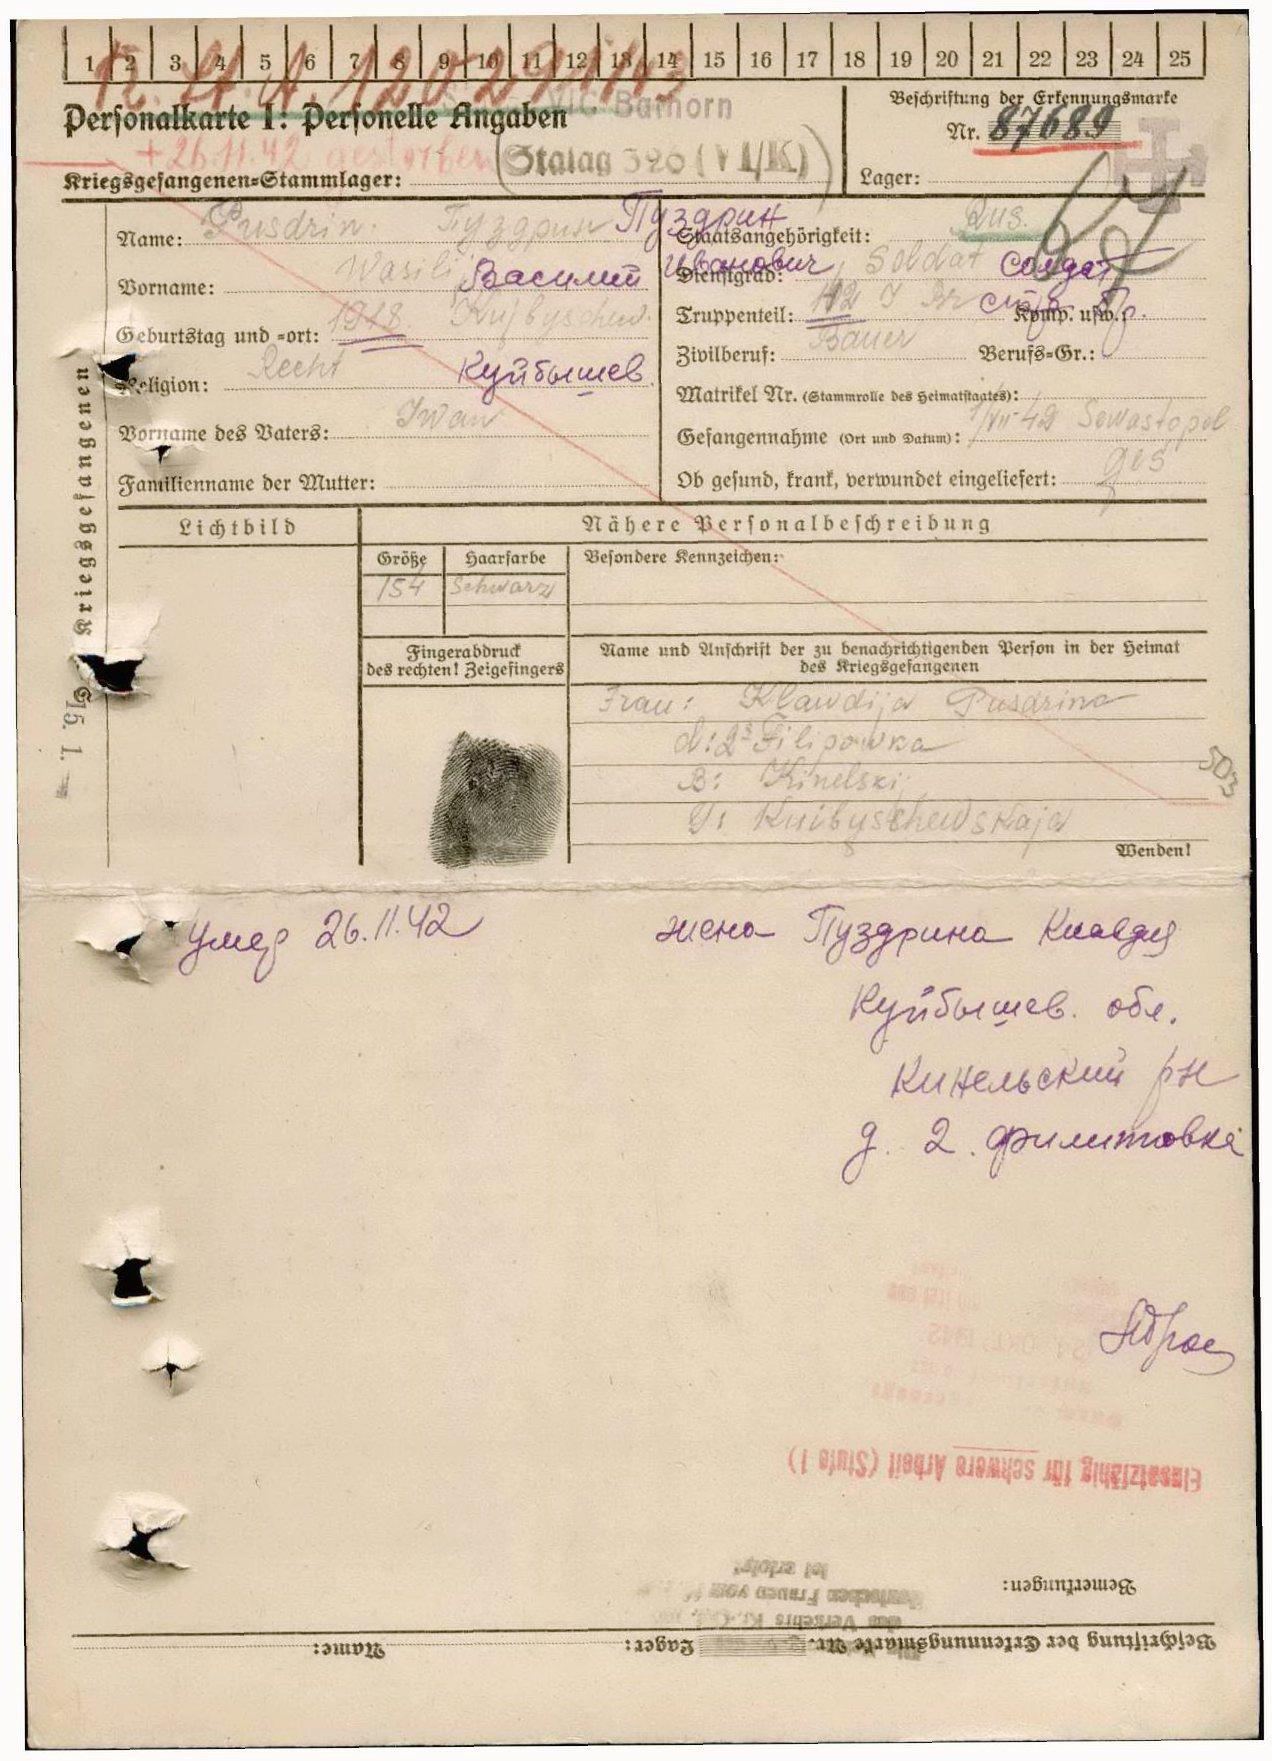 1 2 3 4 5 6 7 8 9 10 11 12 13 14 15 16 17 18 19 20 21 22 23 24 25
Personalkarte I: Personelle Angaben
VIC Bathorn
Beschriftung der Erkennungsmarke
Nr. 87689
+ 26.11.42 gestorben
Kriegsgefangenen=Stammlager: Stalag 326 (VI/K)
Lager:
Name: Pusdrin. Пуздрин Пуздрин
Staatsangehörigkeit: Rus.
Vorname: Wasilij Василий Иванович
Dienstgrad: Soldat солдат
Geburtstag und =ort: 1918 Kujbyschew.
Truppenteil: 112 J Br Komp. usw.:
Religion: Recht Куйбышев
Zivilberuf: Bauer Berufs=Gr.:
Matrikel Nr. (Stammrolle des Heimatstaates):
Vorname des Vaters: Iwan
Gefangennahme (Ort und Datum): 1/VII-42 Sewastopol
Familienname der Mutter:
Ob gesund, krank, verwundet eingeliefert: ges
des Kriegsgefangenen
Lichtbild
Nähere Personalbeschreibung
Größe Haarfarbe Besondere Kennzeichen:
154 Schwarz
Fingerabdruck
des rechten! Zeigefingers
Name und Anschrift der zu benachrichtigenden Person in der Heimat
des Kriegsgefangenen
Frau: Klawdija Pusdrina
d: 2 Filipowka
B: Kinelski
G: Kuibyschewskaja
503
Wenden!
умер 26.11.42
жена Пуздрина Клавдия
Куйбышев. обл.
Кинельский р-н
д. 2. Филиповка
Einsatzfähig für schwere Arbeit (Stufe 1)
Bemerkungen:
ist erfolgt.
deutschen Frauen vom
des Verkehrs
Beschriftung der Erkennungsmarke Nr. Lager: Name: